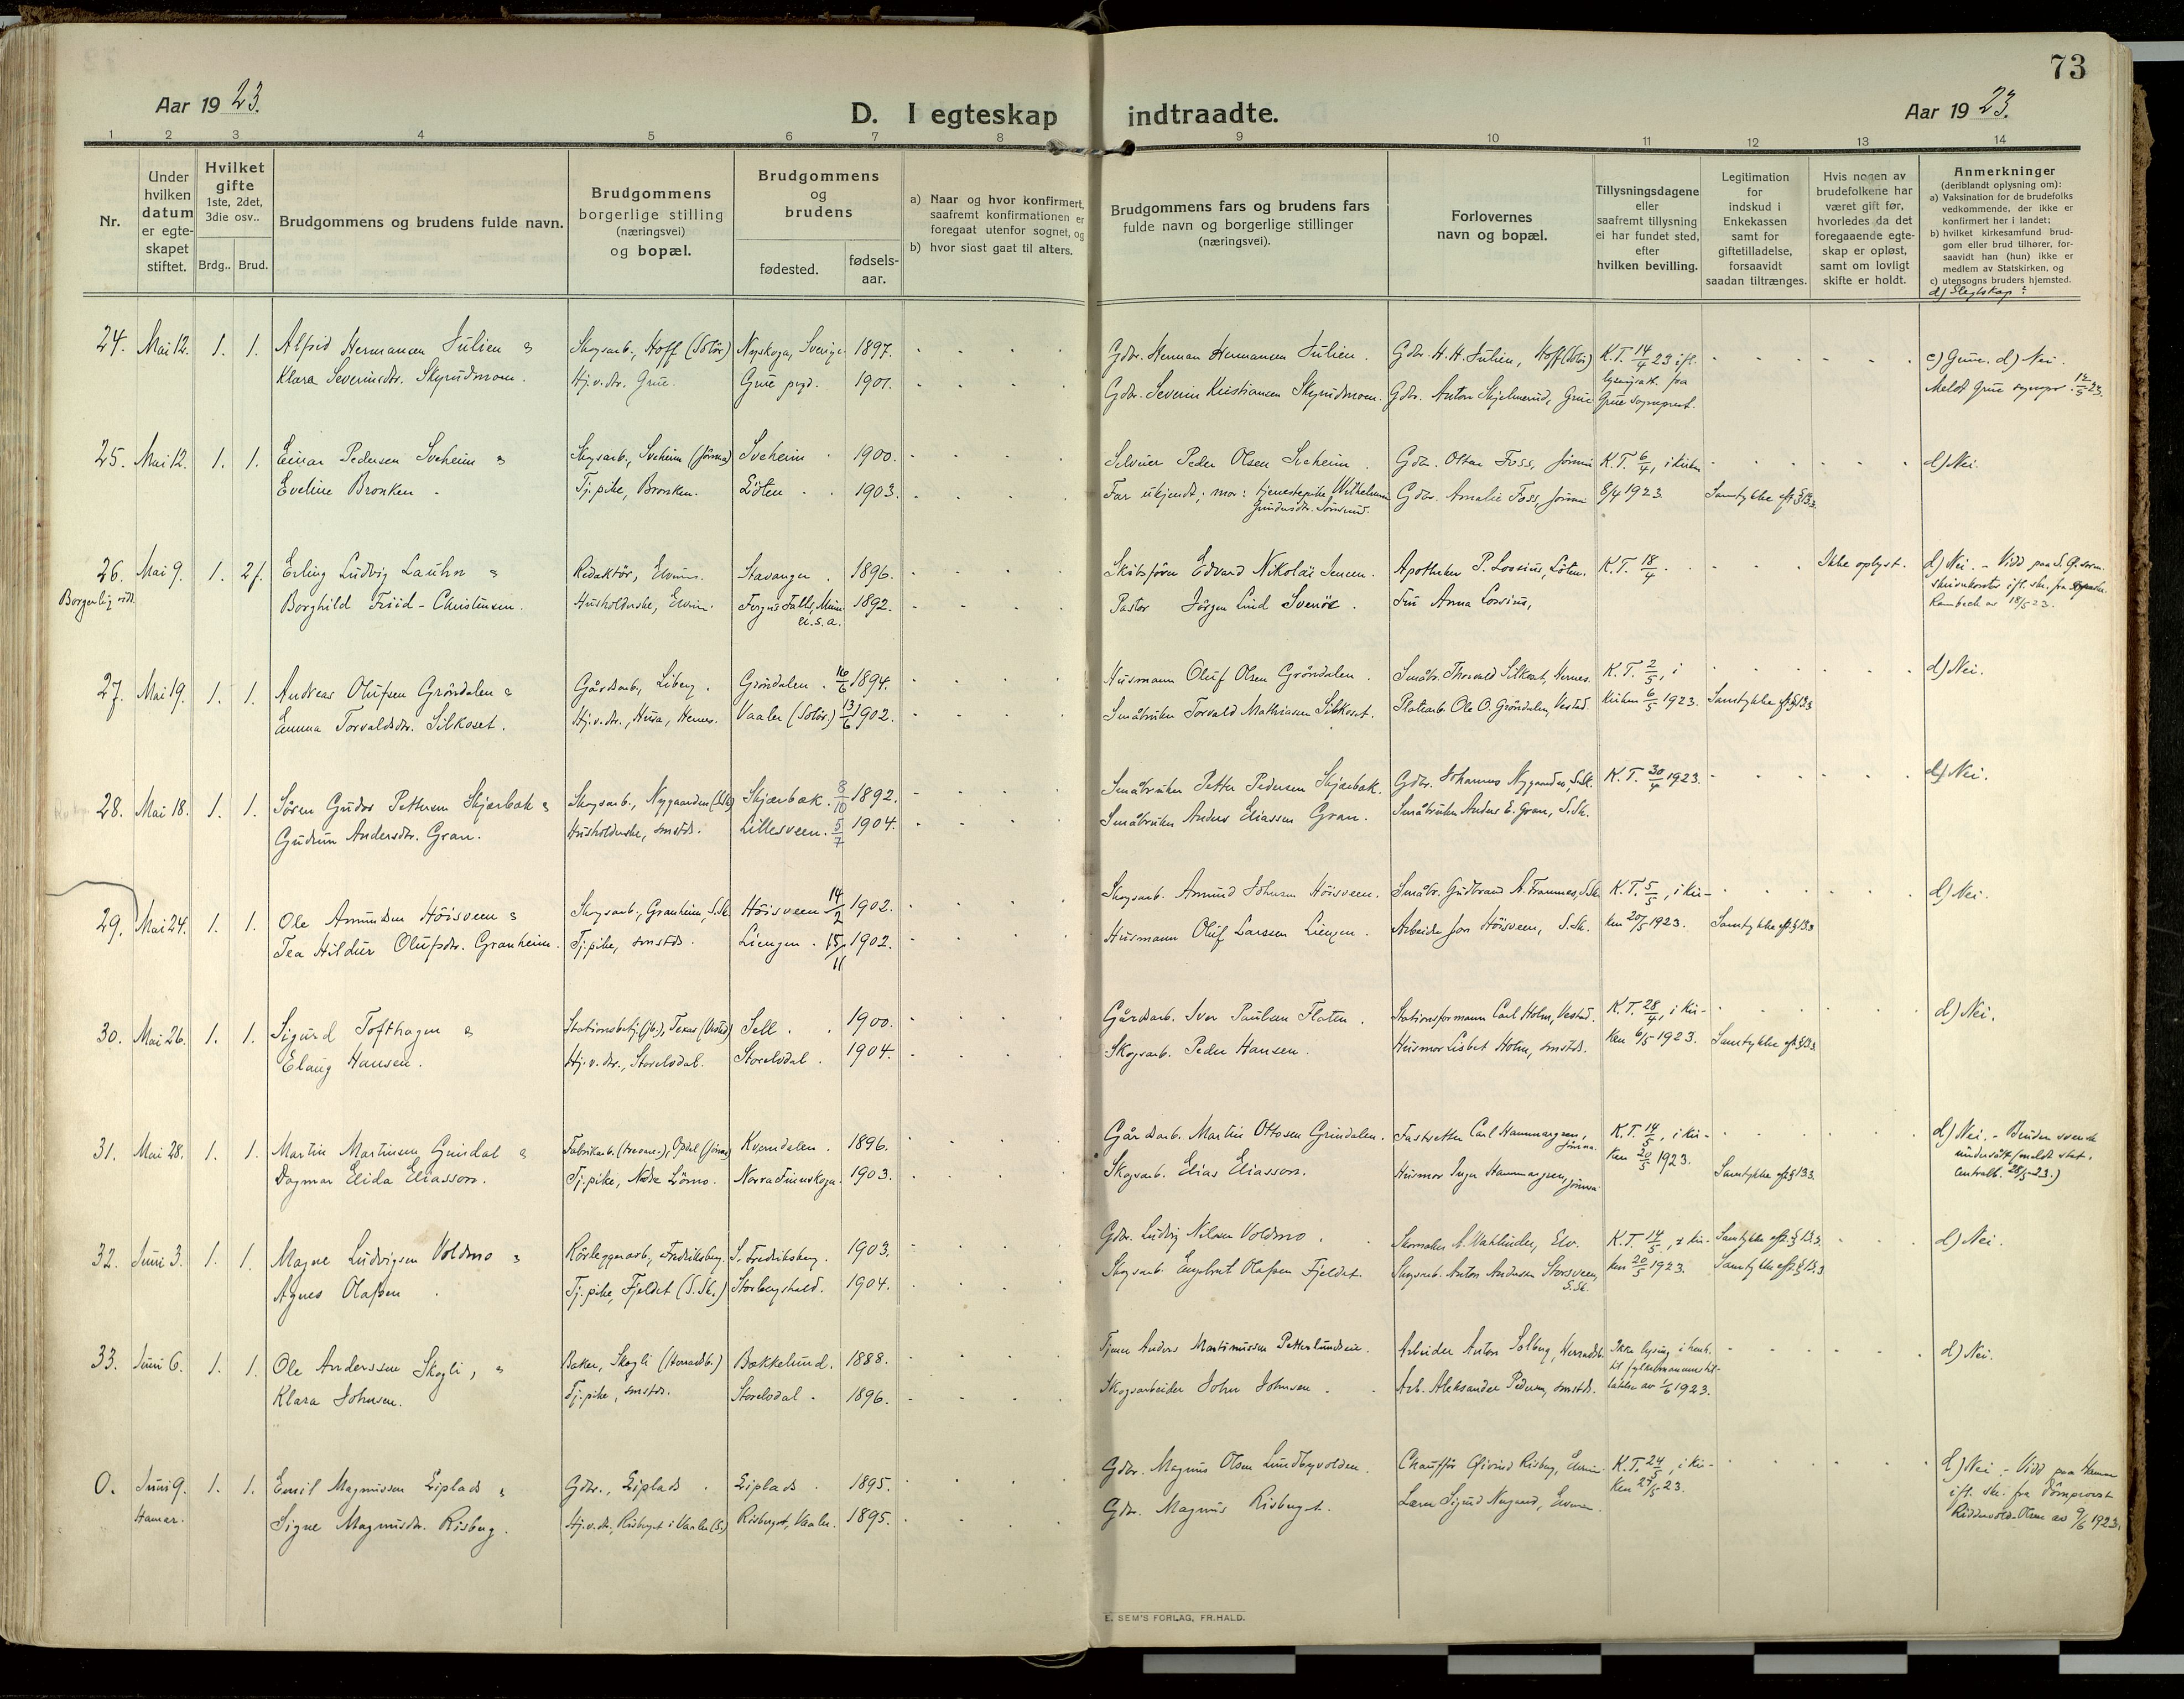 73
Aar 1923.
D. I egteskap indtraadte.
Aar 1923.
1 2 3 4 5 6 7 8 9 10 11 12 13 14
Nr.
Under hvilken datum er egte-skapet stiftet.
Hvilket gifte 1ste, 2det, 3die osv..
Brdg.. Brud.
Brudgommens og brudens fulde navn.
Brudgommens borgerlige stilling (næringsvei) og bopæl.
Brudgommens og brudens
fødested. fødsels-aar.
a) Naar og hvor konfirmert, saafremt konfirmationen er foregaat utenfor sognet, og
b) hvor sidst gaat til alters.
Brudgommens fars og brudens fars fulde navn og borgerlige stillinger (næringsvei).
Forlovernes navn og bopæl.
Tillysningsdagene eller saafremt tillysning ei har fundet sted, efter hvilken bevilling.
Legitimation for indskud i Enkekassen samt for giftetilladelse, forsaavidt saadan tiltrænges.
Hvis nogen av brudefolkene har været gift før, hvorledes da det foregaaende egte-skap er opløst, samt om lovligt skifte er holdt.
Anmerkninger
(deriblandt oplysning om):
a) Vaksination for de brudefolks vedkommende, der ikke er konfirmert her i landet;
b) hvilket kirkesamfund brud-gom eller brud tilhører, for-saavidt han (hun) ikke er medlem av Statskirken, og
c) utensogns bruders hjemsted.
d) Slegtskap?
24. Mai 12. 1. 1. Alfrid Hermansen Julien Skogsarb., Hoff (Solör) Nyskoga, Sverige 1897. Gdbr. Herman Hermansen Julien. Gdbr. H. H. Julien, Hoff (Solör) K.T. 14/4 23 ifl. c) Grue. d) Nei.
Klara Severinsdtr. Skyrudmoen. Hj.v.dtr. Grue. Grue prgd. 1901. Gdbr. Severin Kristiansen Skyrudmoen. Gdbr. Anton Skjelmerud, Grue Grue sogneprest. Meldt Grue sognepr. 12/5 23.
25. Mai 12. 1. 1. Einar Pedersen Sveheim Skogsarb., Sveheim (Jömna) Sveheim 1900. Selveier Peder Olsen Sveheim. Gdbr. Oltar Foss, Jömna K.T. 6/4, i kirken d) Nei.
Eveline Bronken Tj.pike, Bronken. Löten 1903. Far ukjendt; mor: tjenestepike Wilhelmine Gdbr. Amalie Foss, Jömna 8/4 1923 Samtykke eft. § 13.3
26. Mai 9. 1. 2 f. Erling Ludvig Lauhn Redaktör, Elverum. Stavanger. 1896. Skibsförer Edvard Nikolai Jensen. Apotheker P. Lossius, Löten. K.T. 18/4. Ikke oplyst. d) Nei.
Borgerlig vidd. Borghild Friid-Christensen. Husholderske, Elverum. Fergus Falls, Minn. U.S.A. 1892. Pastor Jörgen Lind Svenöe. Fru Anna Lossius, Rambech av 18/5 23.
27. Mai 19. 1. 1. Andreas Olufsen Gröndalen Gårdsarb., Liberg. Gröndalen. 16/6 1894. Husmann Oluf Olsen Gröndalen. Småbr. Thorvald Silkoset, Hernes. K.T. 2/5, i d) Nei.
Emma Torvaldsdtr. Silkoset. Hj.v.dtr., Husa, Hernes. Vaaler (Solör.) 13/6 1902. Småbruker Torvald Mathiasen Silkoset. Platearb. Ole O. Gröndalen, Vestad. kirken 6/5 1923. Samtykke eft. § 13.3
28. Mai 18. 1. 1. Sören Gudor Pettersen Skjærbæk Skogsarb., Nygaarden (S.Sk.) Skjærbæk. 8/10 1892. Småbruker Petter Pedersen Skjærbæk. Gdbr. Johannes Nygaarden, S.Sk. K.T. 30/4 1923. d) Nei.
Gudrun Andersdtr. Gran. Husholderske, smstds. Lillesveen. 5/7 1904. Småbruker Anders Eliassen Gran. Småbruker Anders E. Gran, S.Sk.
29. Mai 24. 1. 1. Ole Amundsen Höisveen Skogsarb., Granheim, S.Sk. Höisveen 14/2 1902. Skogsarb. Amund Johnsen Höisveen. Småbr. Gudbrand A. Frammes, S.Sk. K.T. 5/5, i kir- d) Nei.
Tea Hildur Olufsdtr. Granheim. Tj.pike, smstds. Liengen. 15/11 1902. Husmann Oluf Larsen Liengen. Arbeider Jon Höisveen, S.Sk. ken 20/5 1923. Samtykke eft. § 13.3
30. Mai 26. 1. 1. Sigurd Tofthagen Stationsbetj. (jb.), Texas (Vestad) Sell. 1900. Gårdsarb. Iver Paulsen Flaten. Stationsformann Carl Holm, Vestad. K.T. 28/4, i kir- d) Nei.
Elaug Hansen. Hj.v.dtr., Storelvdal. Storelvdal. 1904. Skogsarb. Peder Hansen. Husmor Lisbet Holm, smstds. ken 6/5 1923. Samtykke eft. § 13.3
31. Mai 28. 1. 1. Martin Martinsen Grindal Opdal (Jömna) Kverndalen. 1896. Gårdsarb. Martin Ottosen Grindalen. Carl Hammargren, Jömna. K.T. 14/5, i kir- d) Nei. - Bruden svensk
Dagmar Elida Eliasson. Tj.pike, Nedre Lömo. Norra Finnskoga. 1903. Skogsarb. Elias Eliasson. Husmor Inga Hammargren, Jömna. ken 20/5 1923. Samtykke eft. § 13.3. undersått (meldt stat. centralb. 28/5-23.)
32. Juni 3. 1. 1. Magne Ludvigsen Voldmo Rörleggerarb., Fredriksberg. S. Fredriksberg. 1903. Gdbr. Ludvig Nilsen Voldmo. Skomaker A. Wahlinder, Elv. K.T. 14/5, i kir- Samtykke eft. § 13.3 d) Nei.
Agnes Olafsen Tj.pike, Fjeldet (S.Sk.) Storbergshald. 1904. Skogsarb. Engebret Olafsen Fjeldet. Skogsarb. Anton Andersen Storsveen, S.Sk. ken 20/5 1923. Samtykke eft. § 13.3
33. Juni 6. 1. 1. Ole Anderssen Skogli, Baker, Skogli (Herradsb.) Bækkelund. 1888. Anders Martinussen Petterlundseie. Arbeider Anton Solberg, Herradsb. Ikke lysing i henh. til fylkesmannens til- d) Nei.
Klara Johnsen. Tj.pike, smstds. Storelvdal. 1896. Skogsarbeider John Johnsen. Arb. Aleksander Pedersen, smstds. latelse av 1/6 1923.
0. Juni 9. 1. 1. Emil Magnussen Eiplads Gdbr., Eiplads. Eiplads. 1895. Gdbr. Magnus Olsen Lundbyvolden. Chaufför Øivind Risberg, Elverum K.T. 24/5, i kir- d) Nei. - Vidd paa Hamar
Hamar. Signe Magnusdtr. Risberg. Hj.v.dtr., Risberget i Vaaler (S.) Risberget, Vaaler. 1895. Gdbr. Magnus Risberget. Lærer Sigurd Nygaard, Elverum. ken 27/5 23. ifl. skr. fra Domprovst Riddervold-Olsen av 9/6 1923.
E. SEM'S FORLAG, FR.HALD.